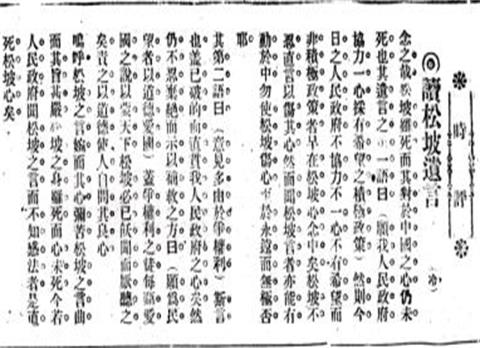 時評
◎讀松坡遺言 (冷)
念之哉松坡雖死而其對於中國之心仍未
死也其遺言之第一語曰(願我人民政府
協力一心採有希望之積極政策)然則今
日之人民政府不協力不一心不有希望而
非積極政策者早在松坡心念中矣松坡不
忍直言以傷其心然而聞松坡言者亦能有
動於中勿使松坡傷心至於永遠而無極否
耶
其第二語曰(意見多由於爭權利)斯言
也蓋已破的而直貫我人民政府之心矣然
仍不忍棄絕而示以補救之方曰(願爲民
望者以道德愛國)蓋爭權利之徒每愛
國之說以天下松坡必已飫聞而厭聽之
矣責之以道德使人自問其良心
嗚呼松坡之言婉而其心彌苦松坡之言曲
而其旨甚嚴松坡之身雖死而心未死今若
人民政府聞松坡之言而不知感法者是直
死松坡心矣